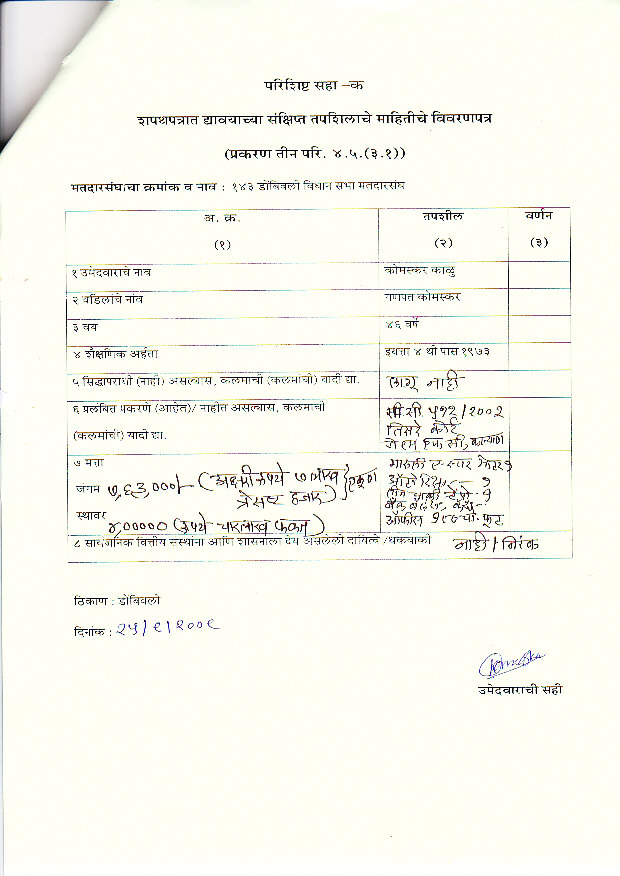 परिशिष्ट सहा –क
शपथपत्रात द्यावयाच्या संक्षिप्त तपशिलाचे माहितीचे विवरणपत्र
(प्रकरण तीन परि. ४.५.(३.१))
मतदारसंघाचा क्रमांक व नाव : १४३ डोंबिवली विधान सभा मतदारसंघ
अ. क्र. तपशील वर्णन
(१) (२) (३)
१ उमेदवाराचे नाव कोमस्कर काळु
२ वडिलांचे नांव गणपत कोमस्कर
३ वय ४६ वर्षे
४ शैक्षणिक अर्हता इयत्ता ४ थी पास १९७३
५ सिद्धापराधी (नाही) असल्यास, कलमाची (कलमांची) यादी द्या. लागू नाही
६ प्रलंबित प्रकरण (आहेत)/ नाहीत असल्यास, कलमाची सी.सी. ५१२/२००२
(कलमांची) यादी द्या. तिसरे कोर्ट
कल्याण
७ मत्ता
जंगम ७,६३,०००/- (अक्षरी रुपये ७ लाख त्रेसष्ट हजार) एकूण
स्थावर ४,००००० (रुपये चारलाख फक्त)
८ सार्वजनिक वित्तीय संस्थांना आणि शासनाला देय असलेली दायित्वे /थकबाकी नाही / निरंक
ठिकाण : डोंबिवली
दिनांक : २५/९/२००९
उमेदवाराची सही